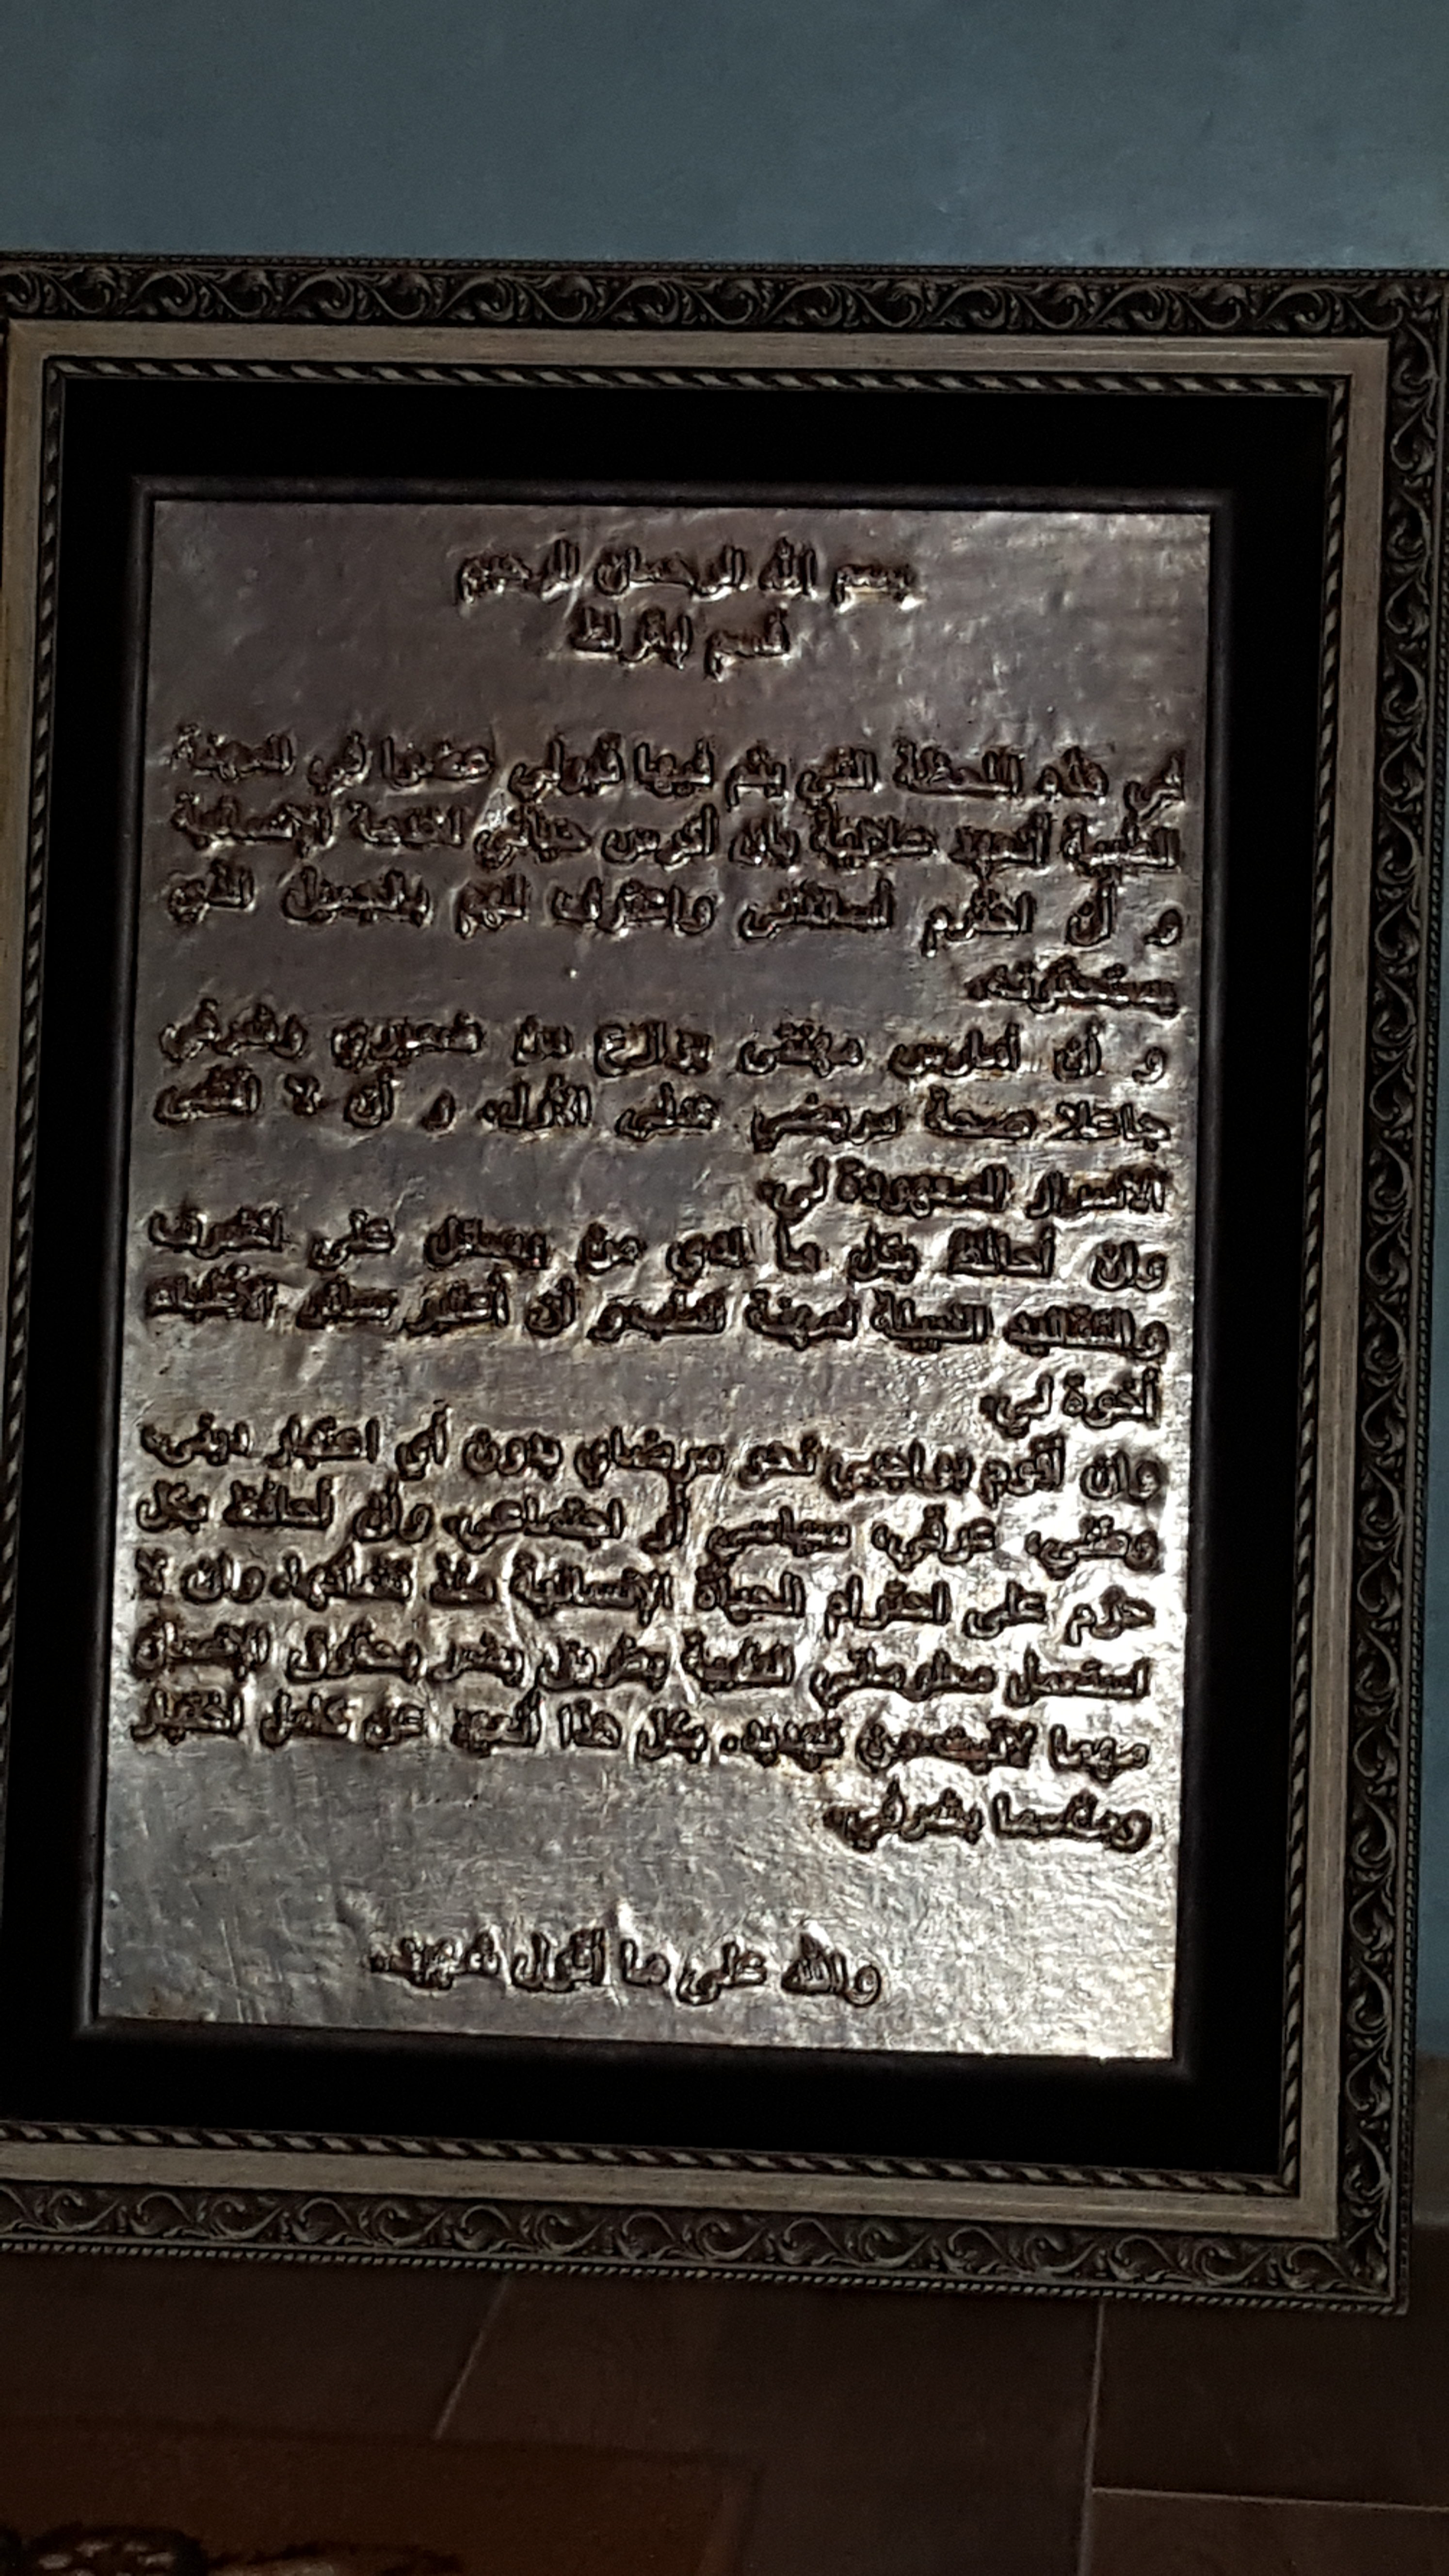 بسم الله الرحمان الرحيم
قسم ابقراط
في هذه اللحظة التي يتم فيها قبولي عضوا في المهنة
الطبية أتعهد علانية بأن أكرس حياتي لخدمة الإنسانية
و أن احترم أساتذتي واعترف لهم بالجميل الذي
يستحقونه.
و أن أمارس مهنتي بوازع من ضميري وشرفي
جاعلا صحة مريضي هدفي الأول. و أن لا أفشي
الأسرار المعهودة لي.
وأن أحافظ بكل ما لدي من وسائل على الشرف
والتقاليد النبيلة لمهنة الطب أن أعتبر سائر الأطباء
اخوة لي.
وأن أقوم بواجبي نحو مرضاي بدون أي اعتبار ديني،
وطني، عرقي، سياسي أو اجتماعي. وأن أحافظ بكل
حزم على احترام الحياة الإنسانية منذ نشأتها. وأن لا
استعمل معلوماتي الطبية بطريق يضر بحقوق الإنسان
مهما لاقيت من تهديد. بكل هذا أتعهد عن كامل اختيار
ومقسما بشرفي.
والله على ما أقول شهيد.